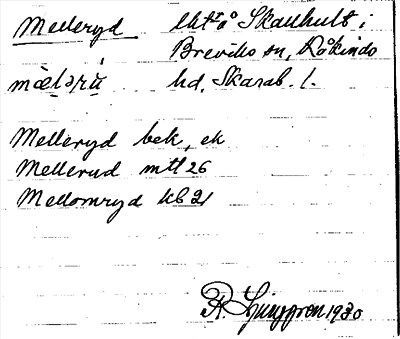 Melleryd lht på Skallhult i
Breviks sn, Råkinds
mælərú hd, Skarab. l.
Melleryd bek, ek
Mellerud mtl 26
Mellomryd kb 21
R Ljunggren 1930